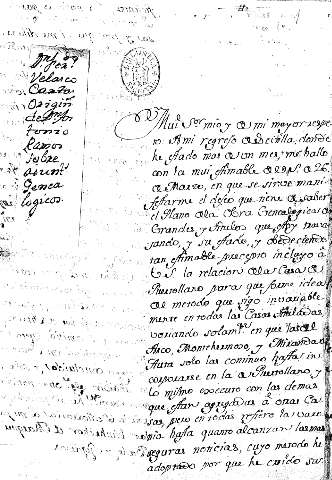 Velasco
Cartas
Origin
de
tonio
Ramos
sobre
asunt
Genea
logicos
Mui Sor mio, y de mi mayor respe
to: A mi regreso de Sevilla, donde
he estado mas de un mes, me hallo
con la mui estimable de V S de 26
de Marzo, en que se sirve mani
festarme el deseo que tiene de saber
el Plano de la Obra Genealogica de
Grandes, y Titulos que estoy traba
jando, y su estado, y obedeciendo
tan estimable precepto incluyo á
V S la relacion de la Casa de
Puertollano para que forme idea
del metodo que sigo invariable
mente en todas las Casas Tituladas
variando solamte en que las de
Arco, Montehermoso, y Miranda de
Auta solo las continuo hasta in
corporarse en la de Puertollano, y
lo mismo executo con las demas
que estan agregadas á otras Ca
sas, pero en todas refiero la varo
nia hasta quanto alcanzan las mas
seguras noticias, cuyo metodo he
adoptado por que he creido sa